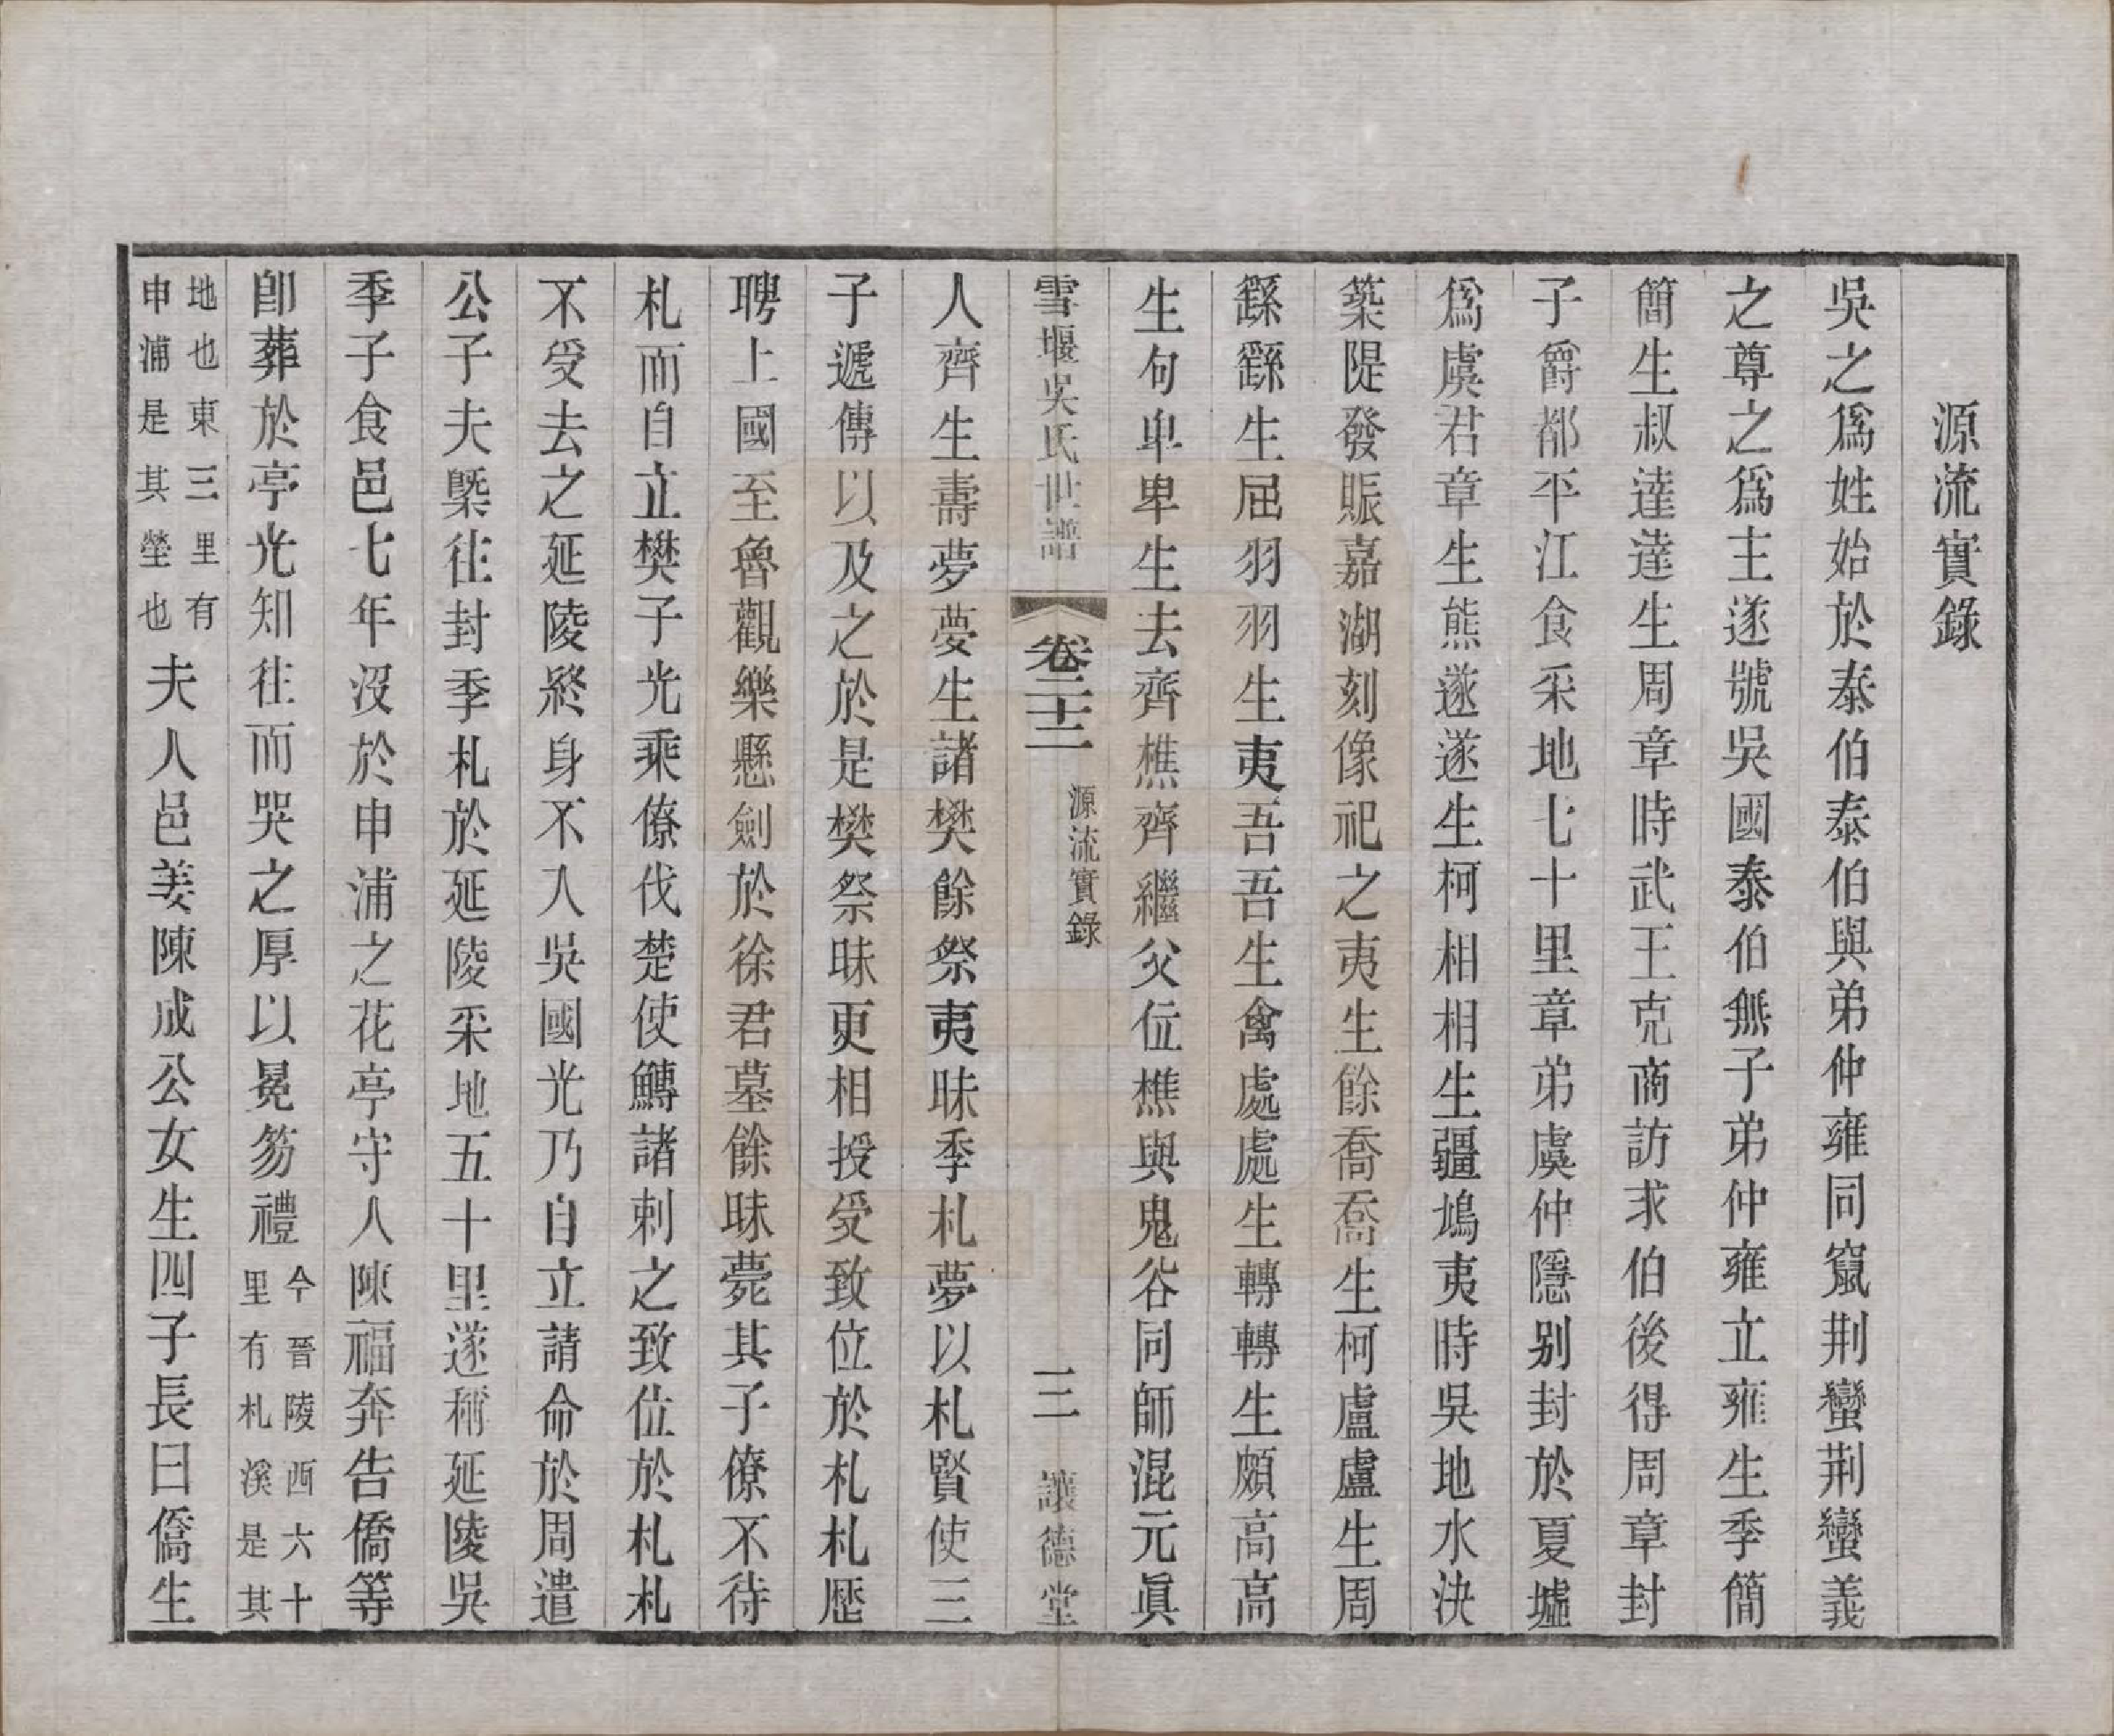 源流實錄
吳之爲姓始於泰伯泰伯與弟仲雍同竄荆蠻荆蠻義
之尊之爲主遂號吳國泰伯無子弟仲雍立雍生季簡
簡生叔達達生周章時武王克商訪求伯後得周章封
子爵都平江食采地七十里章弟虞仲隱别封於夏墟
爲虞君章生熊遂遂生柯相相生疆鳩夷時吳地水決
築隄發賑嘉湖刻像祀之夷生餘喬喬生柯盧盧生周
繇繇生屈羽羽生夷吾吾生禽處處生轉轉生頗高高
生句卑卑生去齊樵齊繼父位樵與鬼谷同師混元眞
雪堰吳氏世譜
卷二十二
源流實錄
三
讓德堂
人齊生壽夢夢生諸樊餘祭夷昧季札夢以札賢使三
子遞傳以及之於是樊祭昧更相授受致位於札札歷
聘上國至魯觀樂懸劍於徐君墓餘昧薨其子僚不待
札而自立樊子光乘僚伐楚使鱄諸刺之致位於札札
不受去之延陵終身不入吳國光乃自立請命於周遣
公子夫槩往封季札於延陵采地五十里遂稱延陵吳
季子食邑七年沒於申浦之花亭守人陳福奔告僑等
卽葬於亭光知往而哭之厚以冕笏禮今晉陵西六十里有札溪是其
地也東三里有申浦是其塋也夫人邑姜陳成公女生四子長曰僑生